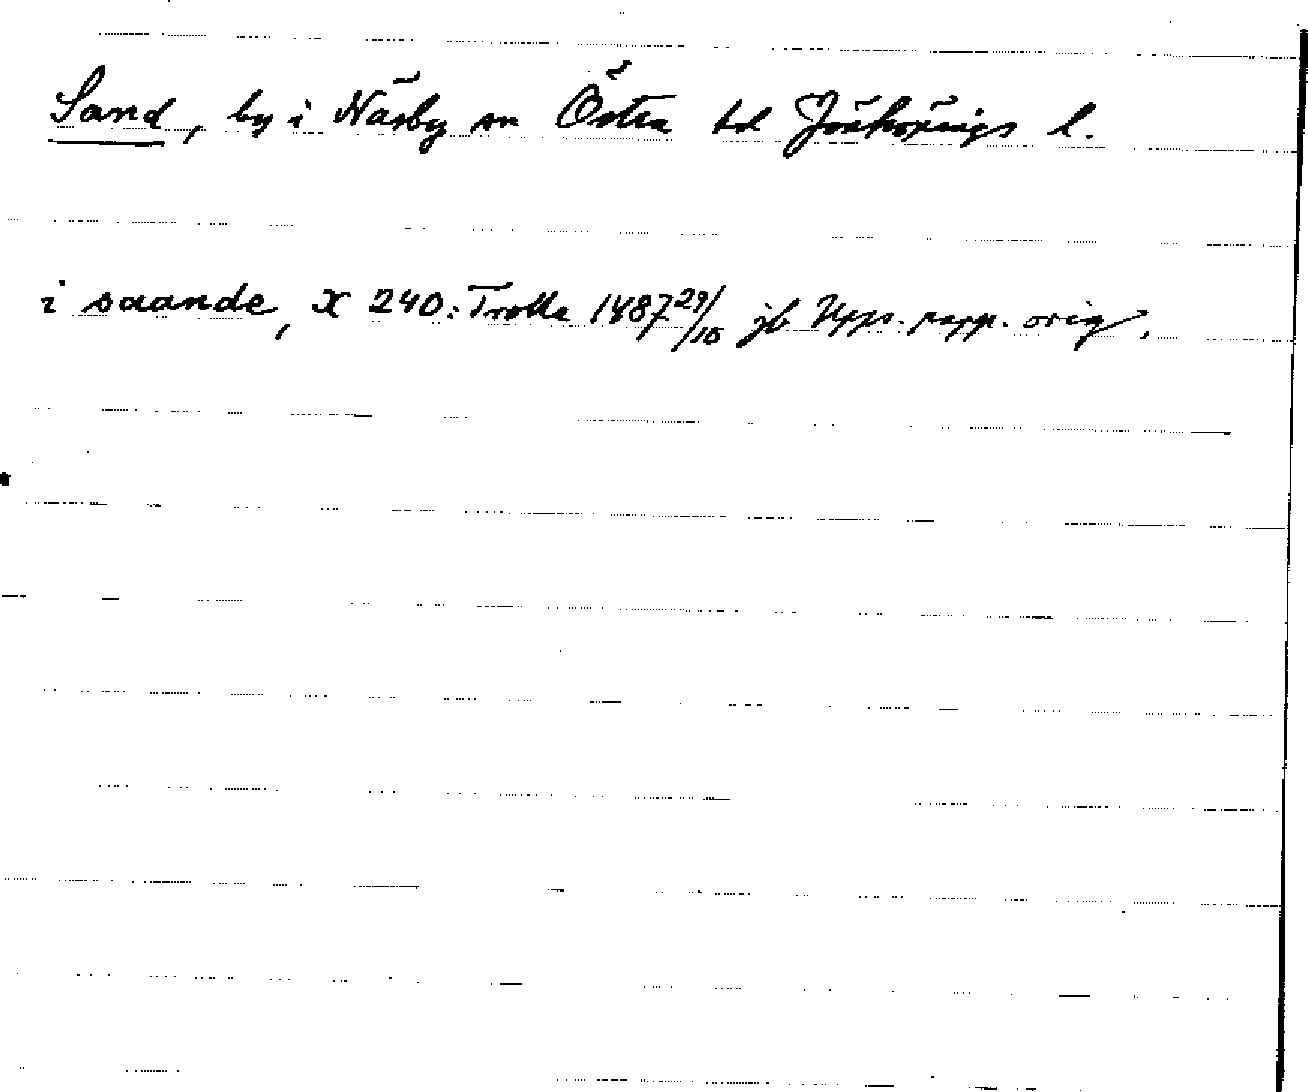 Sand, by i Näsby sn Östra hd Jönköpings l.
i saande, X 240: Trolle 1487 29/10 jb Upps. papp. orig.